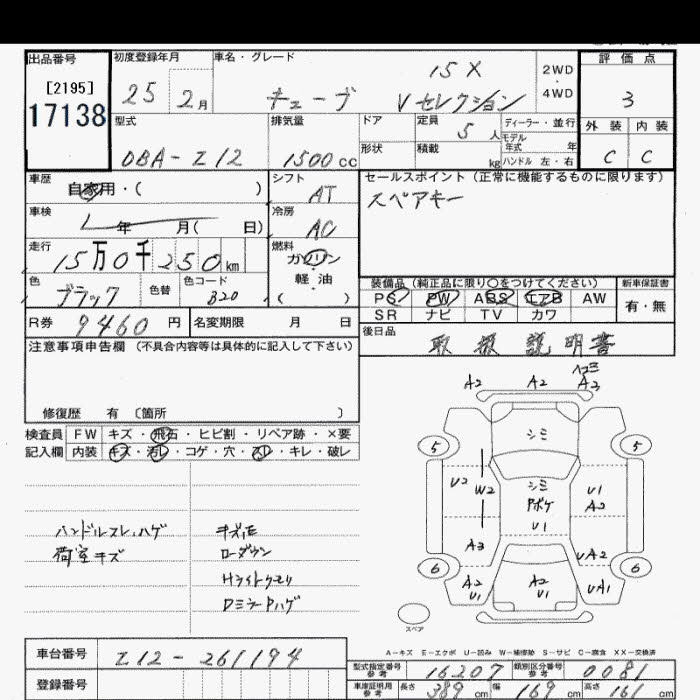 出品番号 初度登録年月 車名・グレード 評価点
[2195] 25 2月 キューブ 15X 2WD・4WD 3
17138 Vセレクション
型式 排気量 ドア 定員 5人 ディーラー・並行 外装 内装
DBA-Z12 1500cc 形状 積載 kg モデル年式 年 C C
ハンドル 左・右
車歴 自家用・( ) シフト AT セールスポイント(正常に機能するものに限ります)
車検 年 月( 日) 冷房 AC スペアキー
走行 15万0千250km 燃料 ガソリン・軽油 ( )
色 ブラック 色替 色コード B20
装備品(純正品に限り〇をつけてください) 新車保証書
PS PW ABS エアB AW 有・無
SR ナビ TV カワ
R券 9460円 名変期限 月 日 後日品 取扱説明書
注意事項申告欄 (不具合内容等は具体的に記入して下さい)
修復歴 有 〔箇所 〕
検査員 FW キズ・飛石・ヒビ割・リペア跡・×要
記入欄 内装 キズ・汚レ・コゲ・穴・スレ・キレ・破レ
A2 A2 A3
シミ
5 5
U2 W2 シミ U1
Pボケ A2
U1
A3 UA2
6 6
A2 U1 A2 U1 UA1
スペア
ハンドルスレ,ハゲ
荷室キズ
ローダウン
Hライトクモリ
DミラーPハゲ
A-キズ E-エクボ U-凹み W-補修跡 S-サビ C-腐食 XX-交換済
車台番号 Z12-261194
型式指定番号 参考 16207 類別区分番号 参考 0081
登録番号
車庫証明用 参考 長さ 389cm 幅 169cm 高さ 161cm